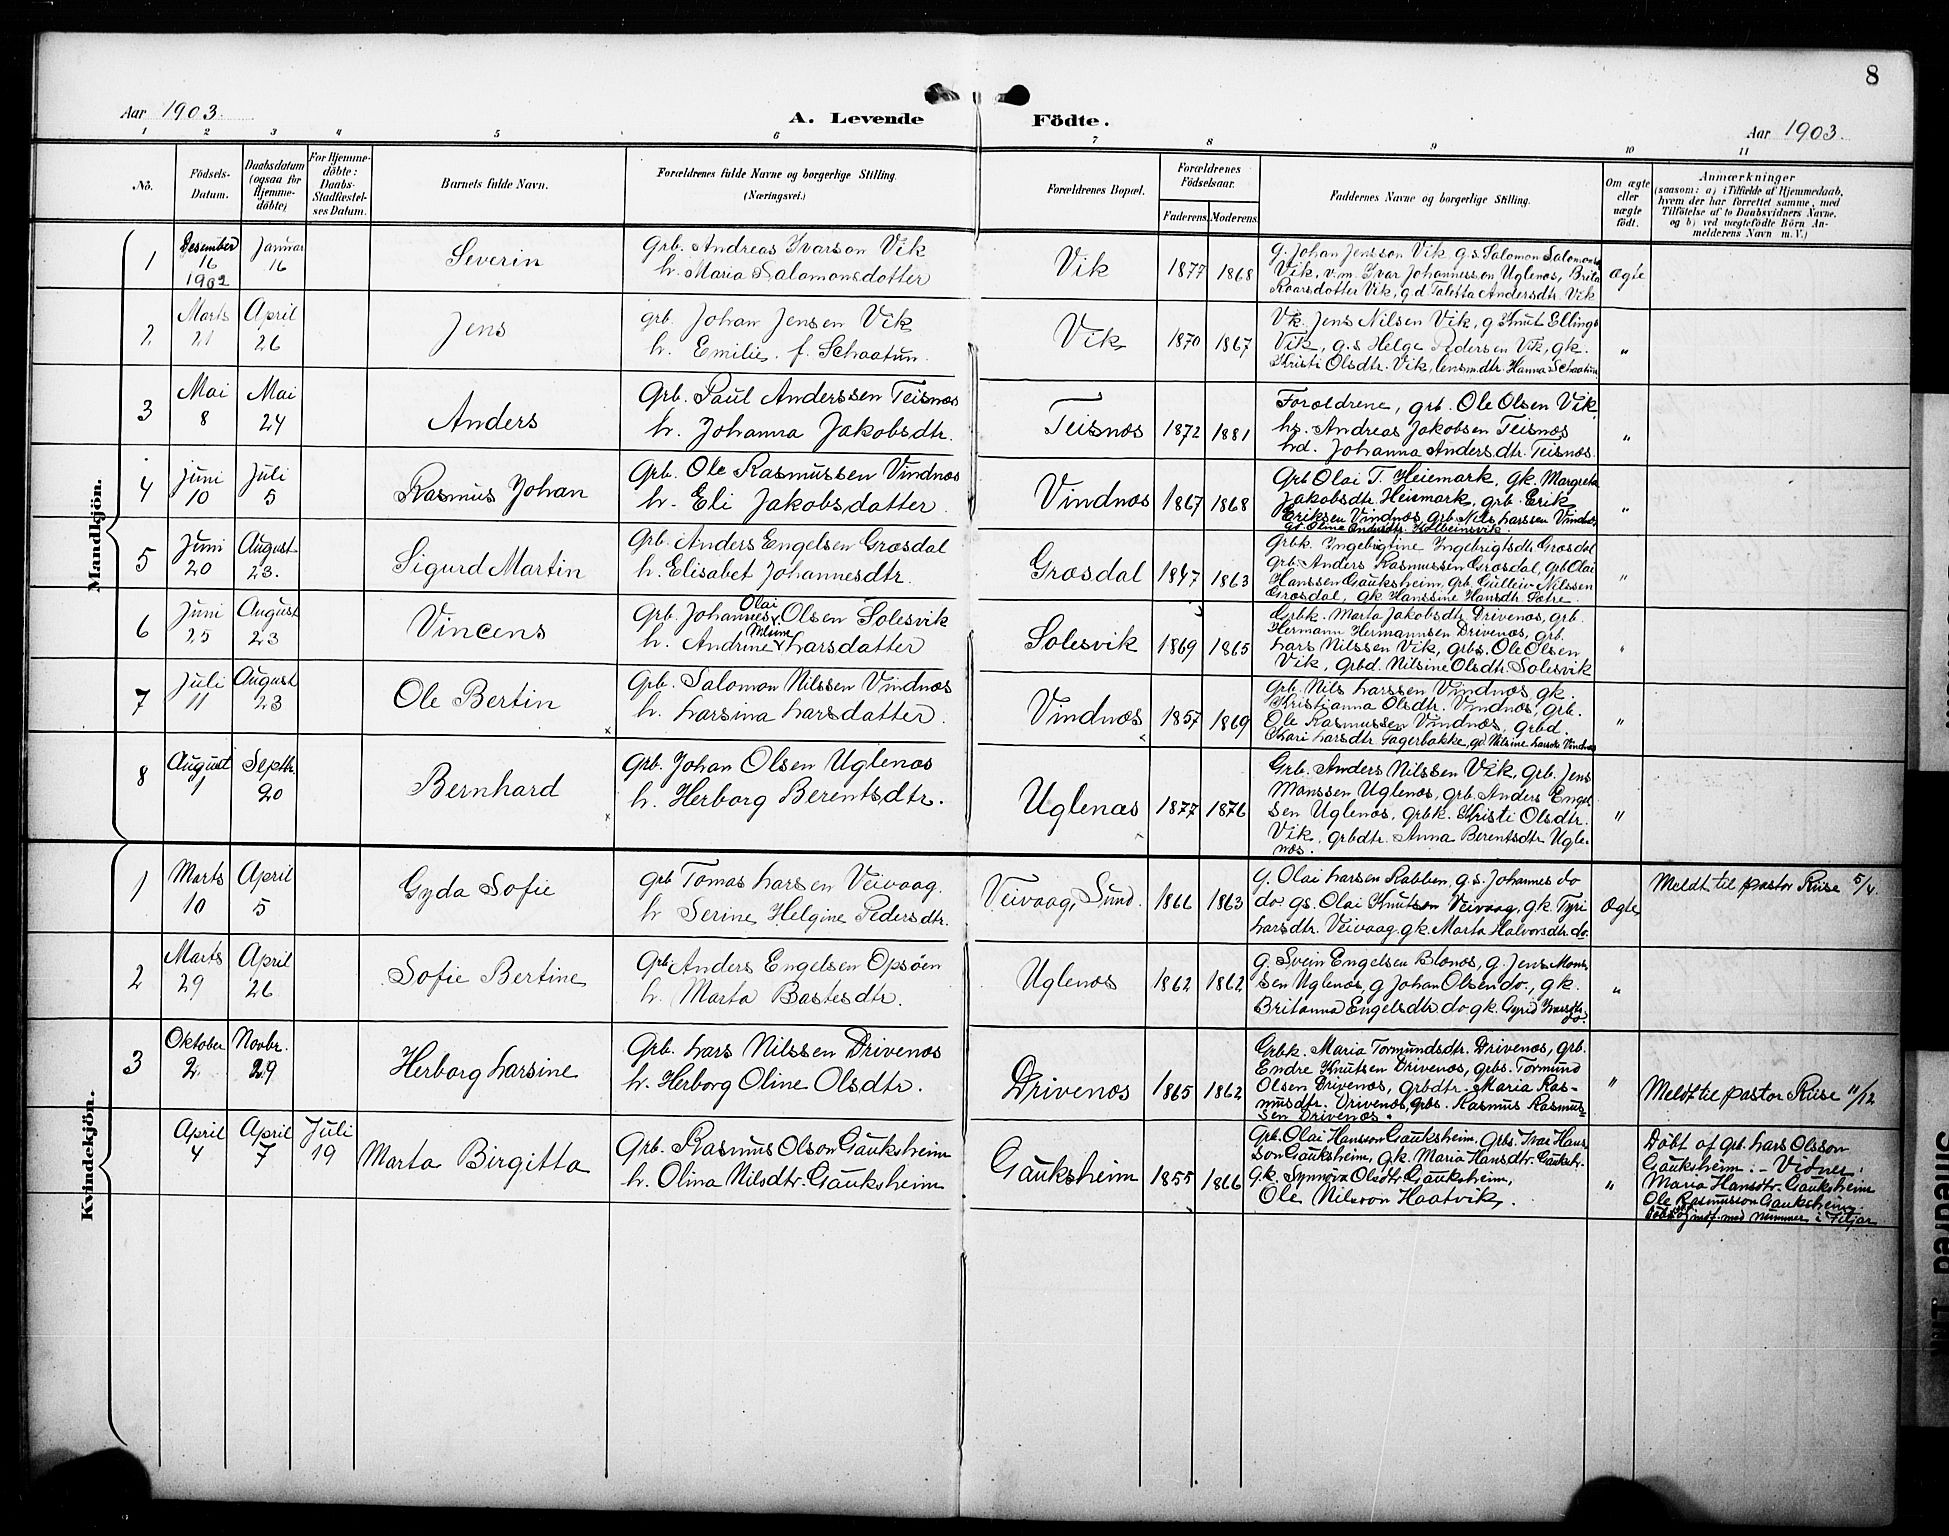 8
Aar 1903.
A. Levende Födte.
Aar 1903.
1 2 3 4 5 6 7 8 9 10 11
No.
Födsels-Datum.
Daabsdatum (ogsaa for Hjemme-döbte)
For Hjemme-döbte: Daabs-Stadfæstel-ses Datum.
Barnets fulde Navn.
Forældrenes fulde Navne og borgerlige Stilling. (Næringsvei.)
Forældrenes Bopæl.
Forældrenes Födselsaar.
Faderens. Moderens.
Faddernes Navne og borgerlige Stilling.
Om ægte eller uægte födt.
Anmærkninger
(saasom: a) i Tilfælde af Hjemmedaab, hvem der har forrettet samme, med Tilföielse af to Daabsvidners Navne, og b) ved uægtefödte Börn An-melderens Navn m. V.)
Mandkjön.
1 Desember 16 1902 Januar 16 Severin
Grb. Andreas Ivarson Vik
h. Maria Salomonsdotter
Vik 1877 1868
g. Johan Jensson Vik g.s. Salomon Salomons
Vik, v.m. Ivar Johannessen Uglenæs, Brita
Roarsdotter Vik, g.d. Taletta Andersdtr. Vik
Ægte
2 Marts 21 April 26 Jens
grb. Johan Jensen Vik
h. Emilie f. Schaatun.
Vik 1870 1867
Vk. Jens Nilsen Vik, g Knut Ellings
Vik, g.s Helge Pedersen Vik, gk.
Kristi Olsdtr. Vik, lensm.dtr. Hanna Schaatun
"
3 Mai 8 Mai 24 Anders
Grb. Paul Anderssen Teisnæs
h. Johanna Jakobsdtr.
Teisnæs 1872 1881
Forældrene, grb. Ole Olsen Vik
hs. Andreas Jakobsen Teisnæs
hd. Johanna Andersdtr. Teisnæs.
"
4 Juni 10 Juli 5 Rasmus Johan
Grb. Ole Rasmussen Vindnæs
h. Eli Jakobsdatter.
Vindnæs 1867 1868
Grb Olai T. Heiemark, gk. Margreta
Jakobsdtr. Heiemark, grb. Erik
Eriksen Vindnæs, Grb. Nils Larssen Vindnæs,
gd. Oline Andersdtr. Kolbeinsvik.
"
5 Juni 20 August 23. Sigurd Martin
Grb. Anders Engelsen Græsdal
h. Elisabet Johannesdtr.
Græsdal 1847 1863
Grbk. Ingebrigtine Ingebrigtsdtr Græsdal
grb. Anders Rasmussen Græsdal, grb Olai
Hanssen Gauksheim, grb. Gulleiv Nilssen
Græsdal, gk Hanssine Hansdtr. Sætre.
"
6 Juni 25 August 23 Vincens
Olai
Grb. Johannes Olsen Solesvik
Nilsine
h. Andrine Larsdatter
Solesvik 1869 1865
Grbk. Marta Jakobsdtr Drivenæs, grb.
Hermann Hermannsen Drivenæs, grb.
Lars Nilssen Vik, grbs. Ole Olsen
Vik, grbd. Nilsine Olsdtr. Solesvik
"
7 Juli 11 August 23 Ole Bertin
Grb. Salomon Nilssen Vindnæs
h. Larsina Larsdatter.
Vindnæs 1857 1869
Grb. Nils Larssen Vindnæs, gk.
Kristianna Olsdtr. Vindnæs, grb.
Ole Rasmussen Vindnæs, grbd.
Kari Larsdtr Fagerbakke, gd. Nilsine Larsdtr Vindnæs
"
8 August 1 Septbr. 20 Bernhard
Grb. Johan Olsen Uglenæs
h. Herborg Berentsdtr.
Uglenæs 1877 1876
Grb. Anders Nilssen Vik, grb. Jens
Monssen Uglenæs, grb. Anders Engel
sen Uglenæs, Grbk. Kristi Olsdtr.
Vik, grbdtr. Anna Berentsdtr Ugle-
næs.
"
Kvindekjön.
1 Marts 10 April 5 Gyda Sofie
Grb Tomas Larsen Veivaag.
h Serine Helgine Pedersdtr.
Veivaag, Sund. 1866 1863
G. Olai Larsen Rabben, g.s. Johannes do
do gs. Olai Knutson Veivaag, gk. Tyri
Larsdtr. Veivaag, gk. Marta Halvorsdtr. do
Ægte
Meldt til pastor Riise 5/4.
2 Marts 29 April 26 Sofie Bertine
Grb. Anders Engelsen Opsöen
h. Marta Bastesdtr.
Uglenæs 1862 1862
g. Svein Engelsen Blænæs, g. Jens Mons
sen Uglenæs, g Johan Olsen do., gk.
Britanna Engelsdtr. do gk. Gyrid Ivarsdtr.
do.
"
3 Oktober 2 Novbr. 29 Herborg Larsine
Grb. Lars Nilssen Drivenæs
h. Herborg Oline Olsdtr.
Drivenæs 1865 1862
Grbk. Maria Tormundsdtr. Drivenæs, grb.
Endre Knutsen Drivenæs, grbs. Tormund
Olsen Drivenæs, Grbdtr. Maria Ras-
musdtr. Drivenæs, grbs. Rasmus Rasmus-
sen Drivenæs.
"
Meldt til pastor Riise 11/12
April 4 April 7 Juli 19 Marta Birgitta
Grb. Rasmus Olson Gauksheim
h. Olina Nilsdtr. Gauksheim
Gauksheim 1855 1866
Grb. Olai Hansson Gauksheim, Grbs. Ivar Hans
son Gauksheim, gk. Maria Hansdtr. Gaukshr.
g.k. Synnöva Olsdtr. Gauksheim,
Ole Nilsson Haatvik.
"
Döbt af grb. Lars Olsson
Gauksheim. - Vidner:
Maria Hansdtr. Gauksheim
Ole Rasmusson Gauksheim.
indf. med nummer i Fitjar